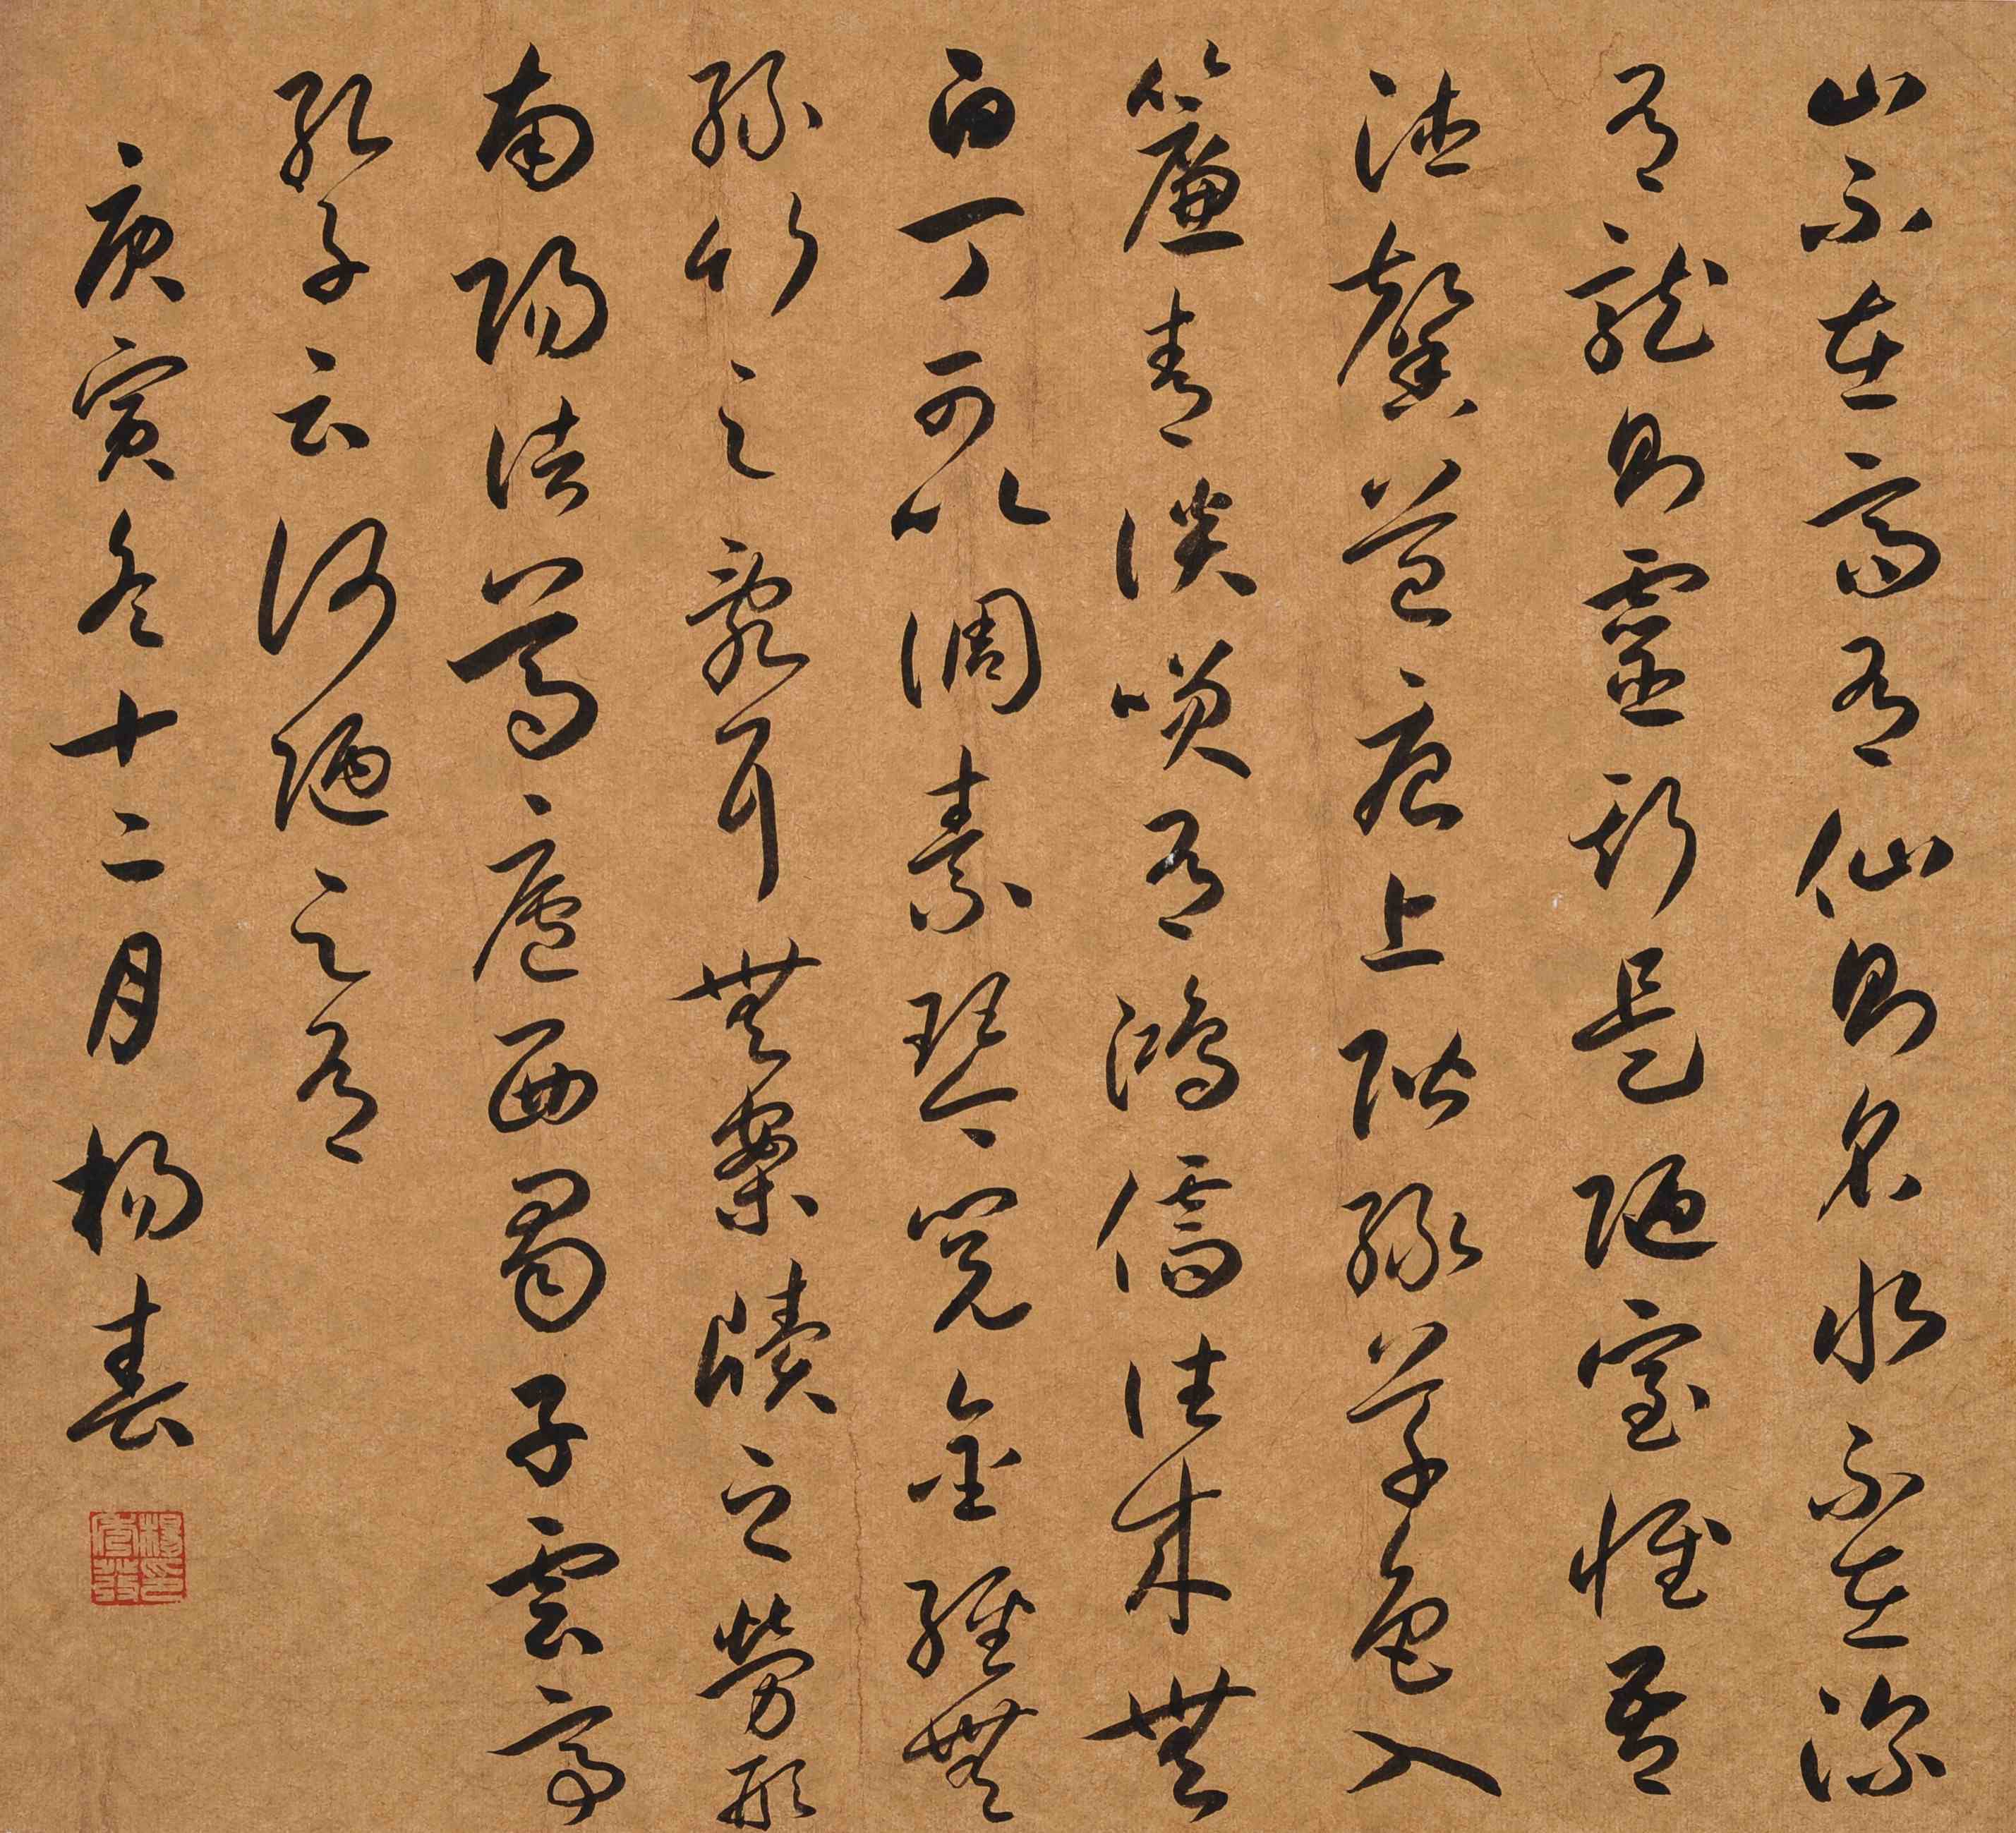 山不在高有仙則名水不在深
有龍則靈斯是陋室惟吾
德馨苔痕上階綠草色入
簾青談咲有鴻儒往來無
白丁可以調素琴閱金經無
絲竹之亂耳無案牘之勞形
南陽諸葛廬西蜀子雲亭
孔子云何陋之有
庚寅冬十二月楊春